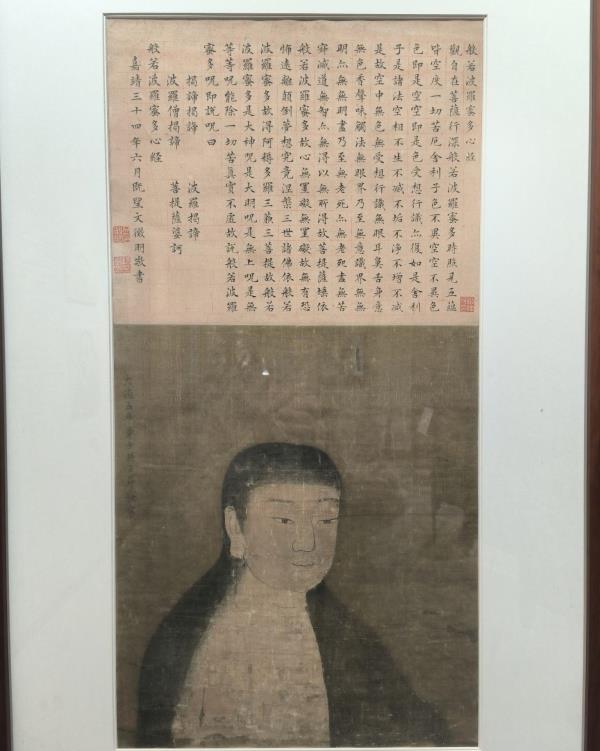 般若波羅蜜多心經
觀自在菩薩行深般若波羅蜜多時照見五蘊
皆空度一切苦厄舍利子色不異空空不異色
色即是空空即是色受想行識亦復如是舍利
子是諸法空相不生不滅不垢不淨不增不減
是故空中無色無受想行識無眼耳鼻舌身意
無色香聲味觸法無眼界乃至無意識界無無
明亦無無明盡乃至無老死亦無老死盡無苦
寂滅道無智亦無得以無所得故菩提薩埵依
般若波羅蜜多故心無罣礙無罣礙故無有恐
怖遠離顛倒夢想究竟涅槃三世諸佛依般若
波羅蜜多故得阿耨多羅三藐三菩提故般若
波羅蜜多是大神呪是大明呪是無上呪是無
等等呪能除一切苦真實不虛故說般若波羅
蜜多呪即說呪曰
揭諦揭諦 波羅揭諦
波羅僧揭諦 菩提薩婆訶
般若波羅蜜多心經
嘉靖三十四年六月既望文徵明敬書